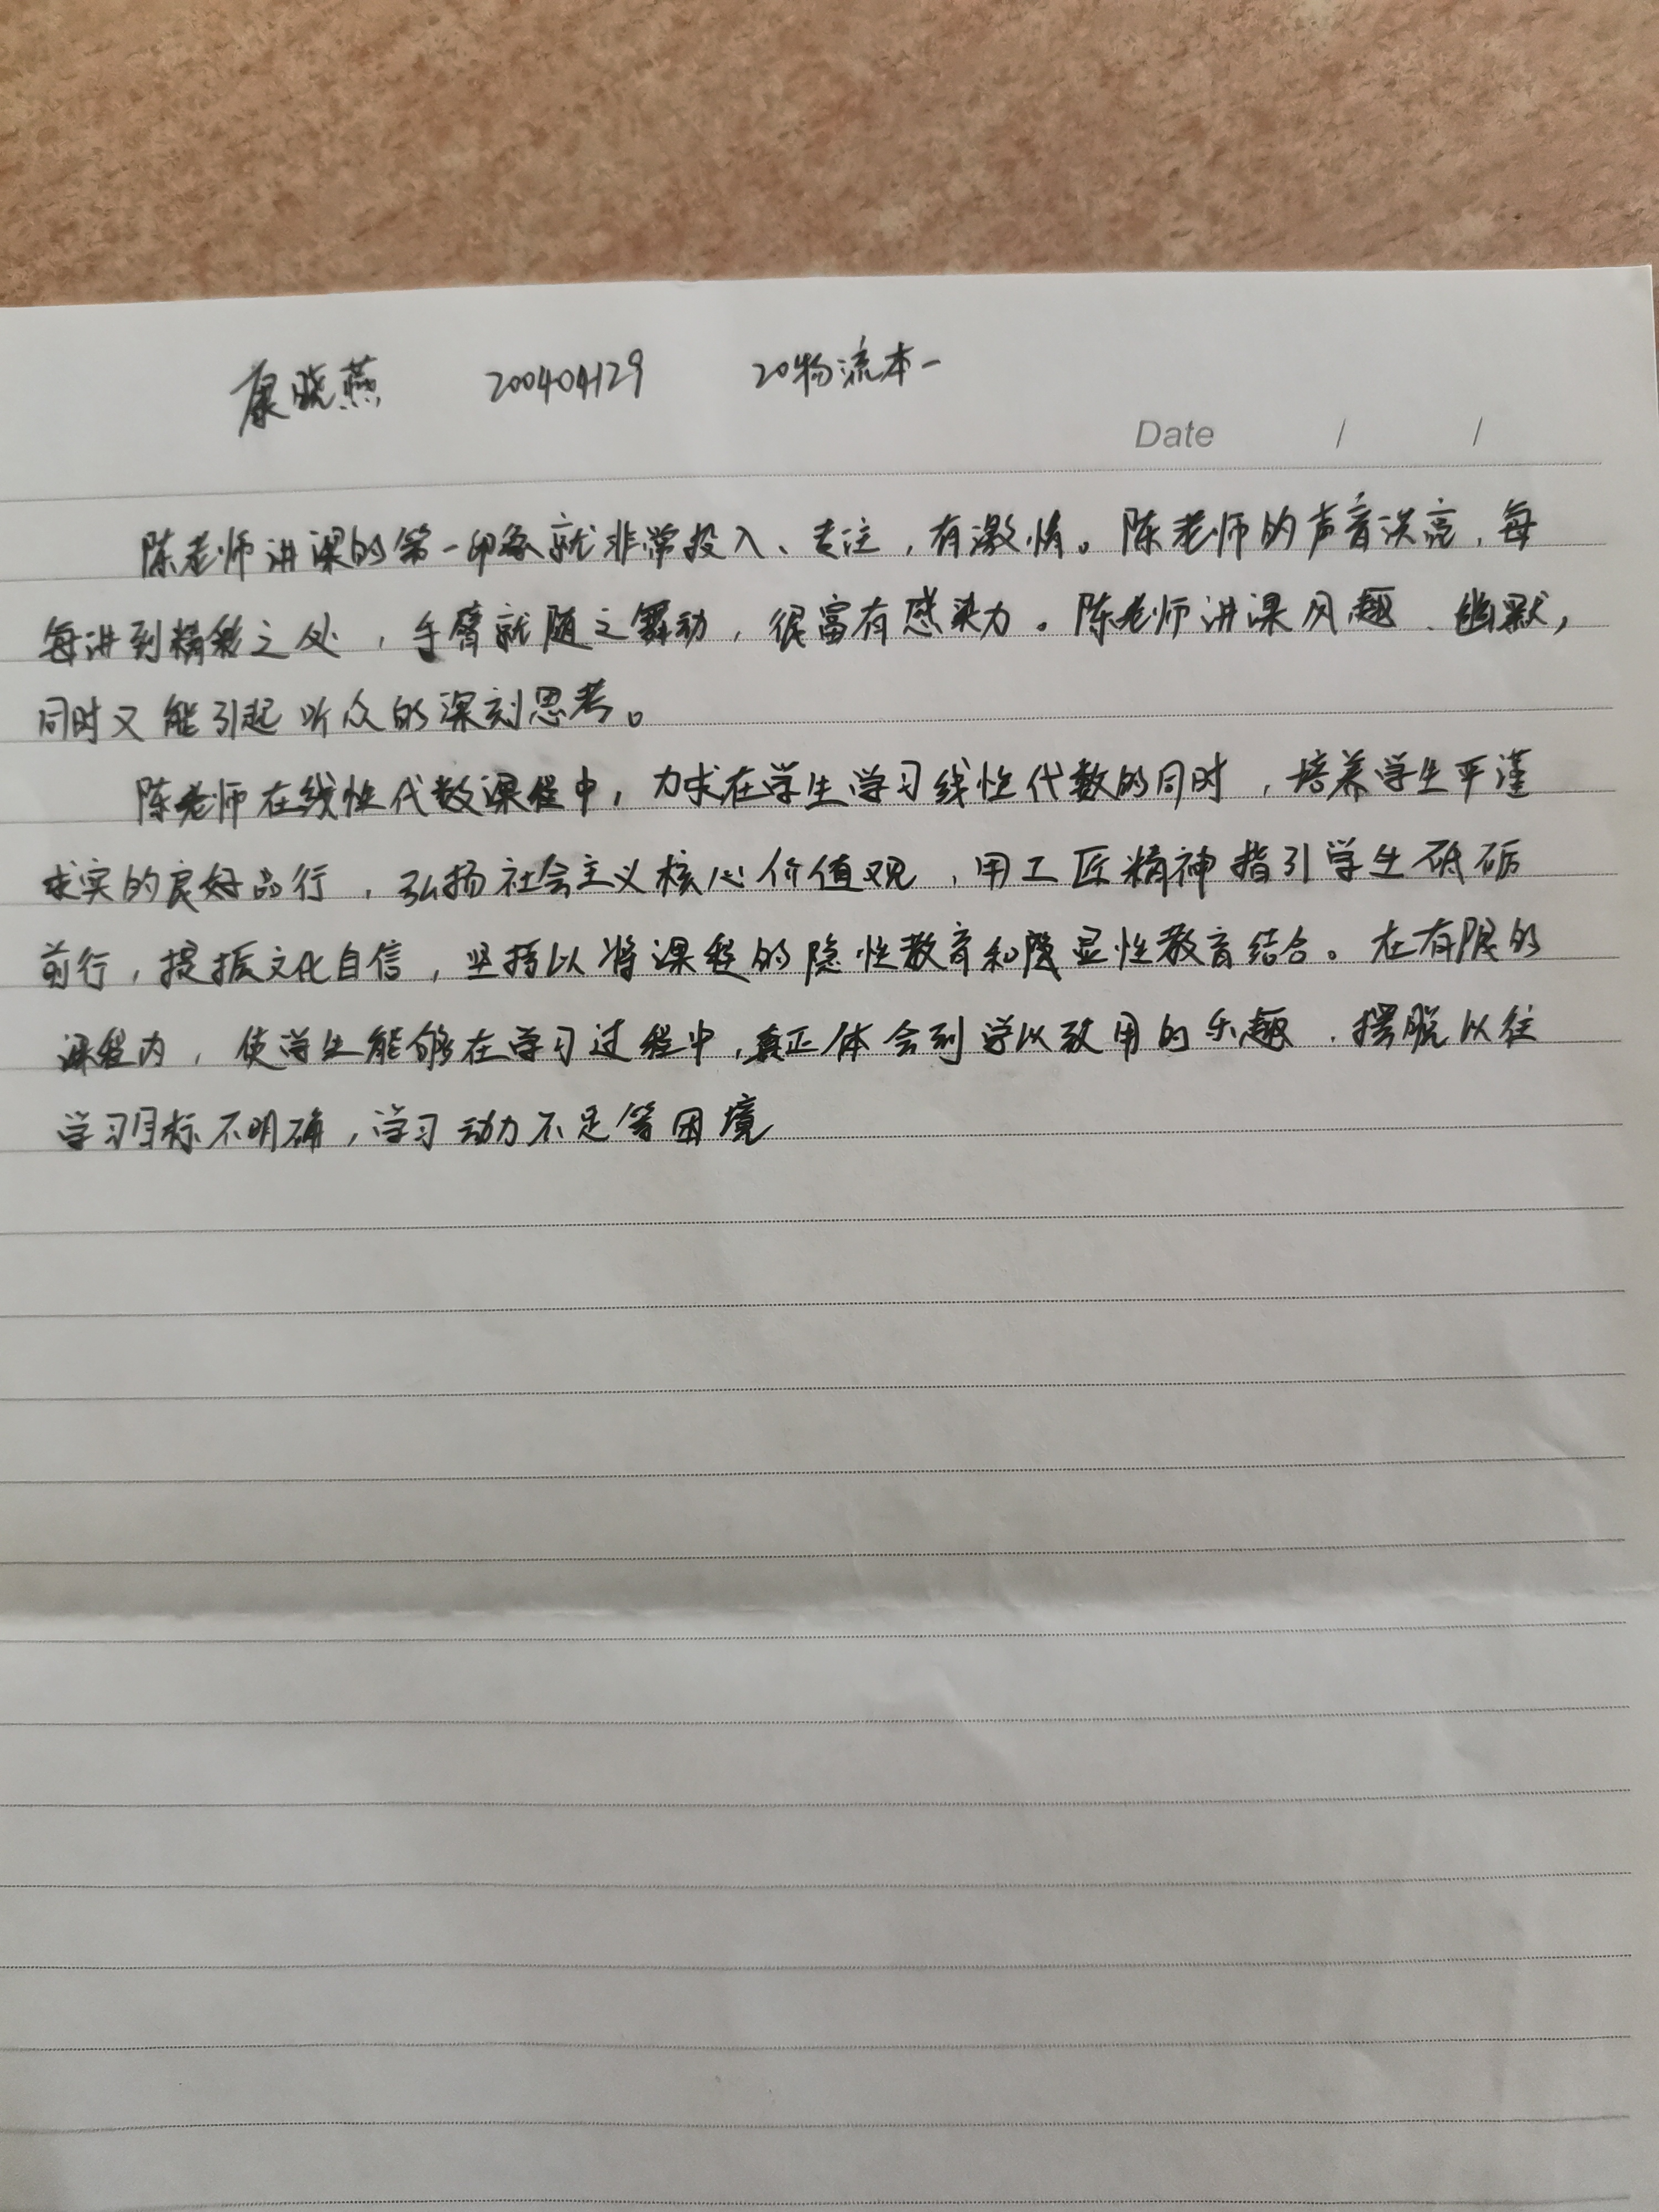 康晓燕 200404129 20物流本一
Date / /
陈老师讲课的第一印象就非常投入、专注,有激情。陈老师的声音洪亮,每
每讲到精彩之处,手臂就随之舞动,很富有感染力。陈老师讲课风趣、幽默,
同时又能引起听众的深刻思考。
陈老师在线性代数课程中,力求在学生学习线性代数的同时,培养学生严谨
求实的良好品行,弘扬社会主义核心价值观,用工匠精神指引学生砥砺
前行,提振文化自信,坚持以将课程的隐性教育和显性教育结合。在有限的
课程内,使学生能够在学习过程中,真正体会到学以致用的乐趣,摆脱以往
学习目标不明确,学习动力不足等困境